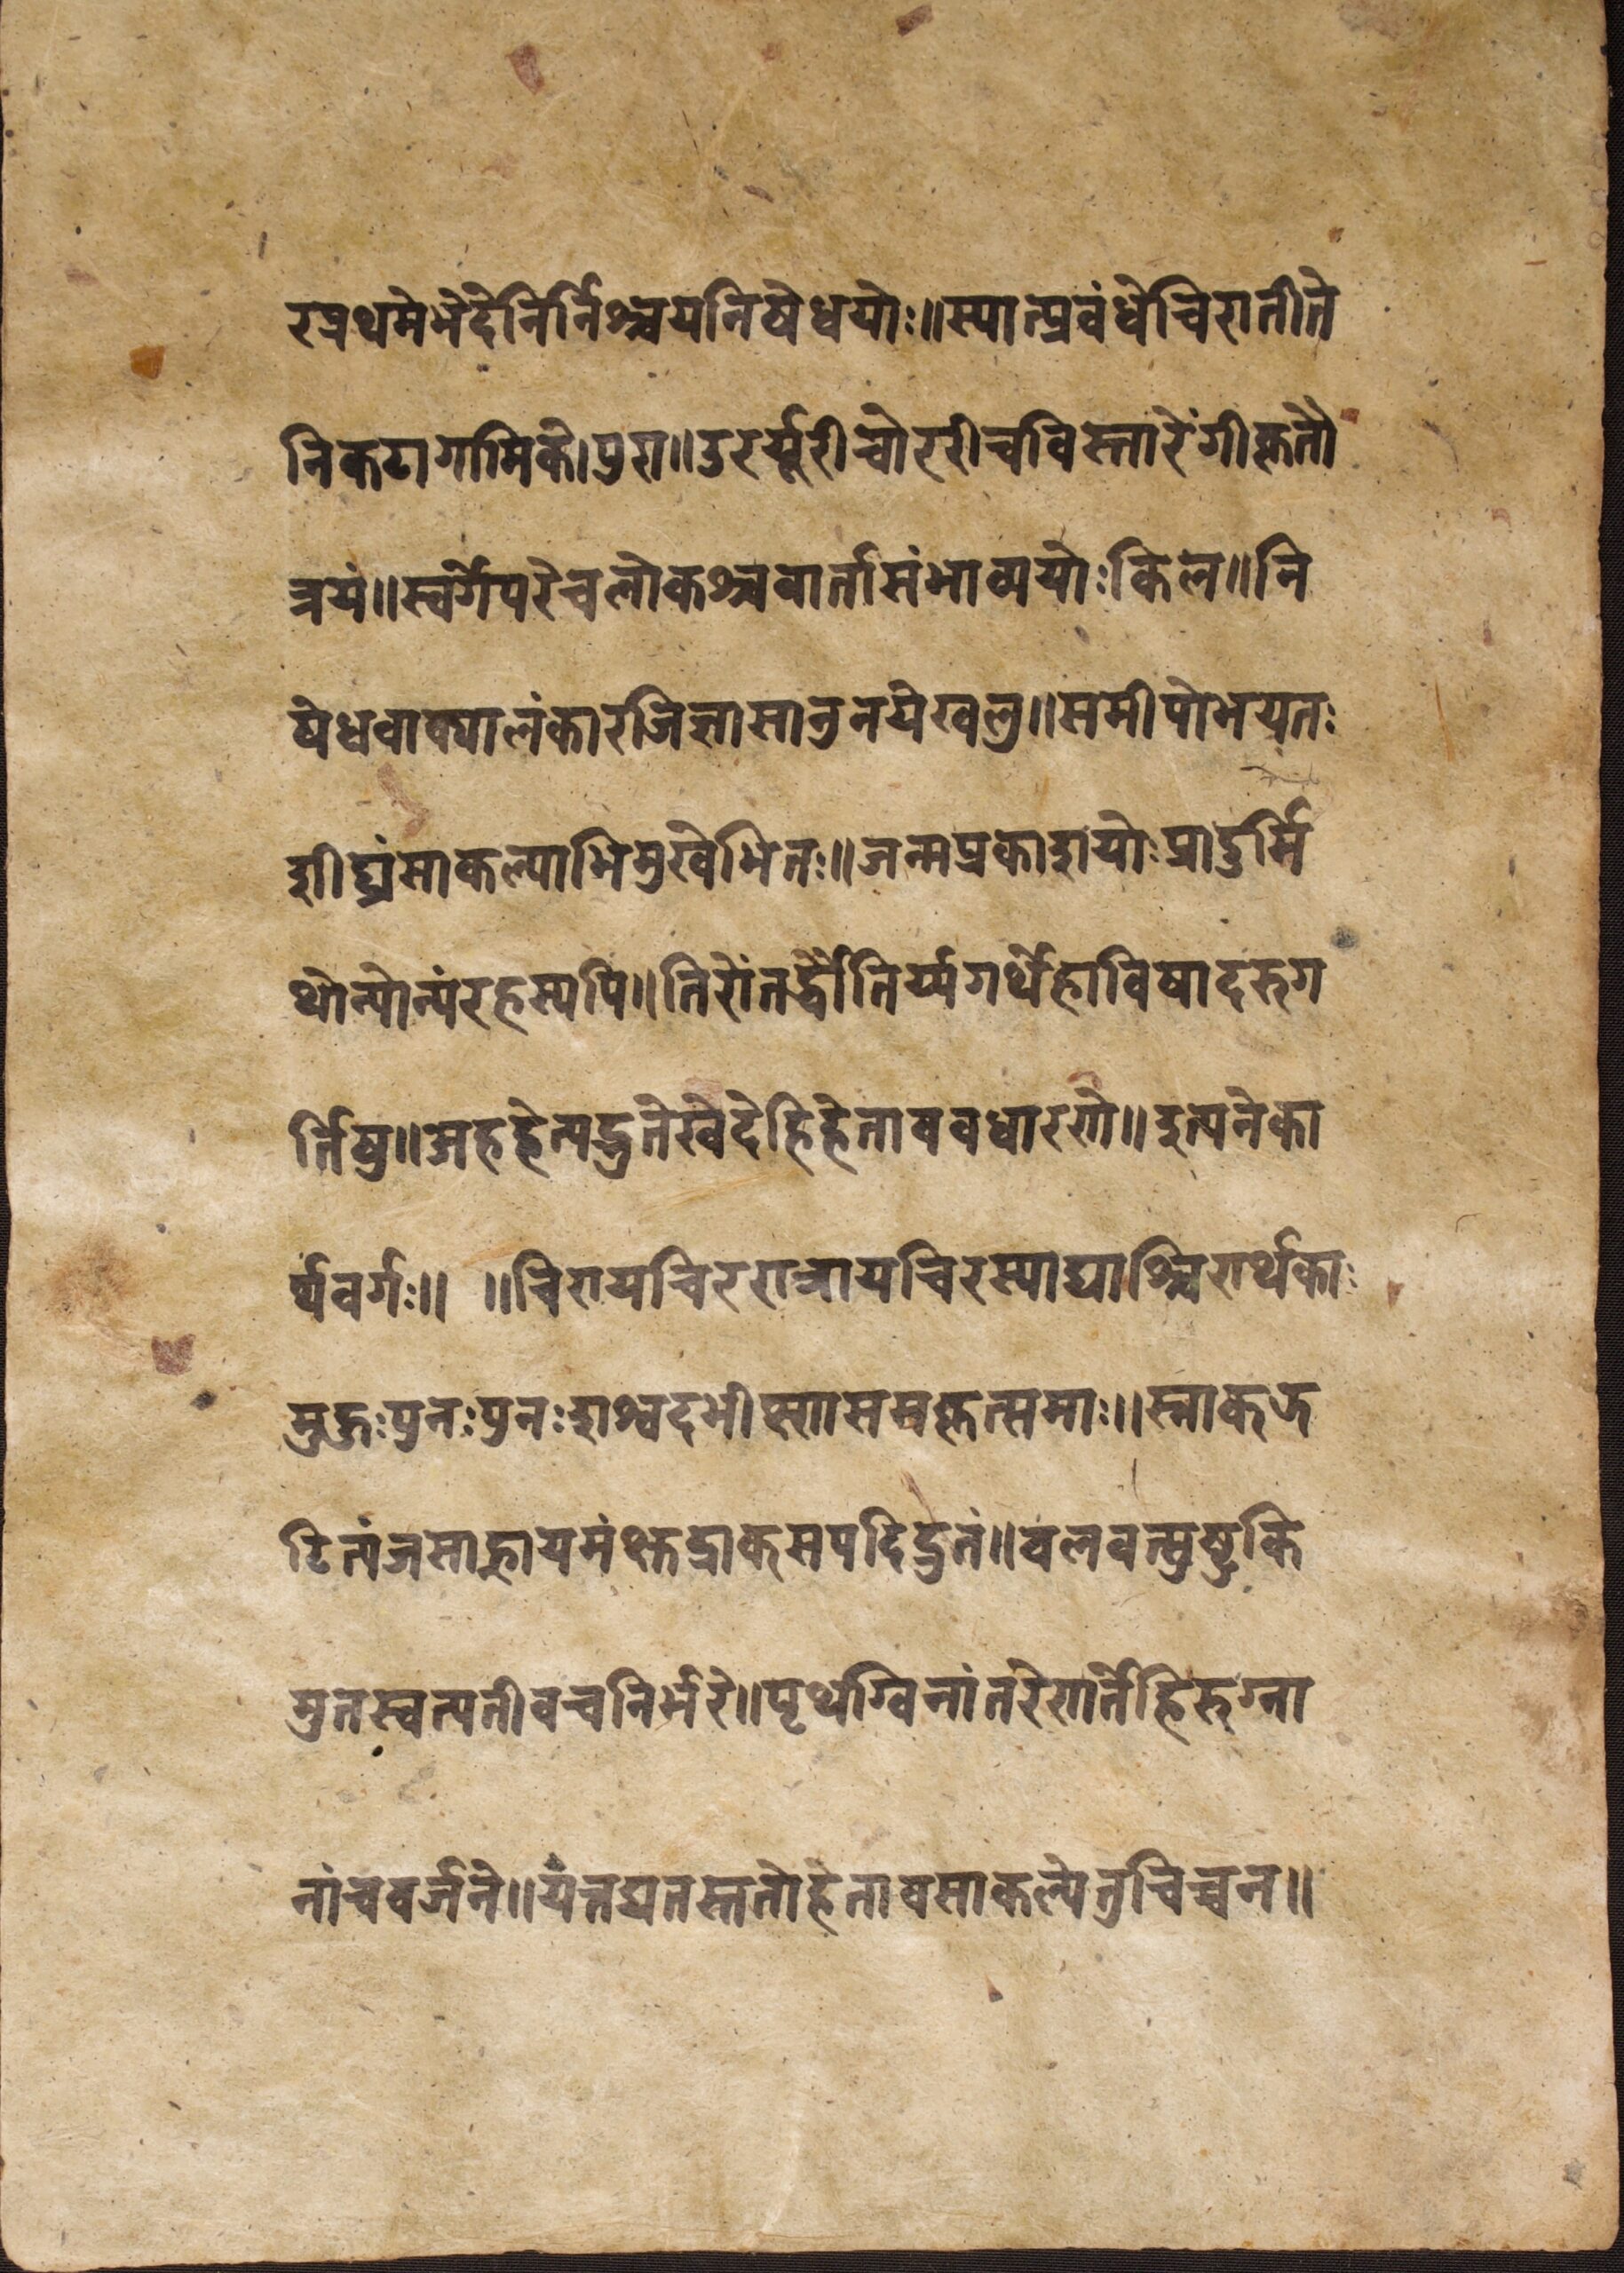 रप्रथमेभेदेनिर्निश्चयनिषेधयोः॥स्यात्प्रवंधेचिरातीते
निकटागामिके।पुरा॥उरर्यूरीचोररीचविस्तारेंगीकृतौ
त्रयं॥स्वर्गेपरेचलोकश्चवार्तासंभाव्ययोःकिल॥नि
षेधवाक्यालंकारजिज्ञासानुनयेखलु॥समीपोभयतः
शीघ्रंसाकल्याभिमुखेभितः॥जन्मप्रकाशयोःप्रादुर्मि
थोन्योन्यंरहस्यपि॥तिरोंतर्द्धौतिर्य्यगर्थेहाविषादरुग
र्तिषु॥अहहेत्यद्भुतेखेदेहिहेताववधारणे॥इत्यनेका
र्थवर्गः॥ ॥चिरायचिररात्रायचिरस्याद्याश्चिरार्थकाः
मुहुःपुनःपुनःशश्वदभीक्ष्णासमसकृत्समाः॥स्राकझ
टित्यंजसाह्नायमंक्षुद्राक्सपदिद्रुतं॥वलवत्सुष्टुकि
मुतस्वत्यतीवचनिर्भरे॥पृथग्विनांतरेणर्तेहिरुग्ना
नांचवर्जने॥यत्तद्यतस्ततोहेतावसाकल्येतुचिच्चन॥